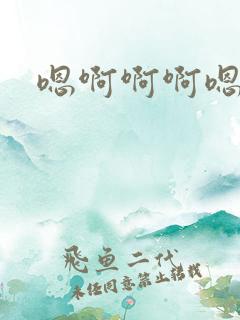 嗯啊啊啊嗯
飛魚二代
未经同意禁止转载